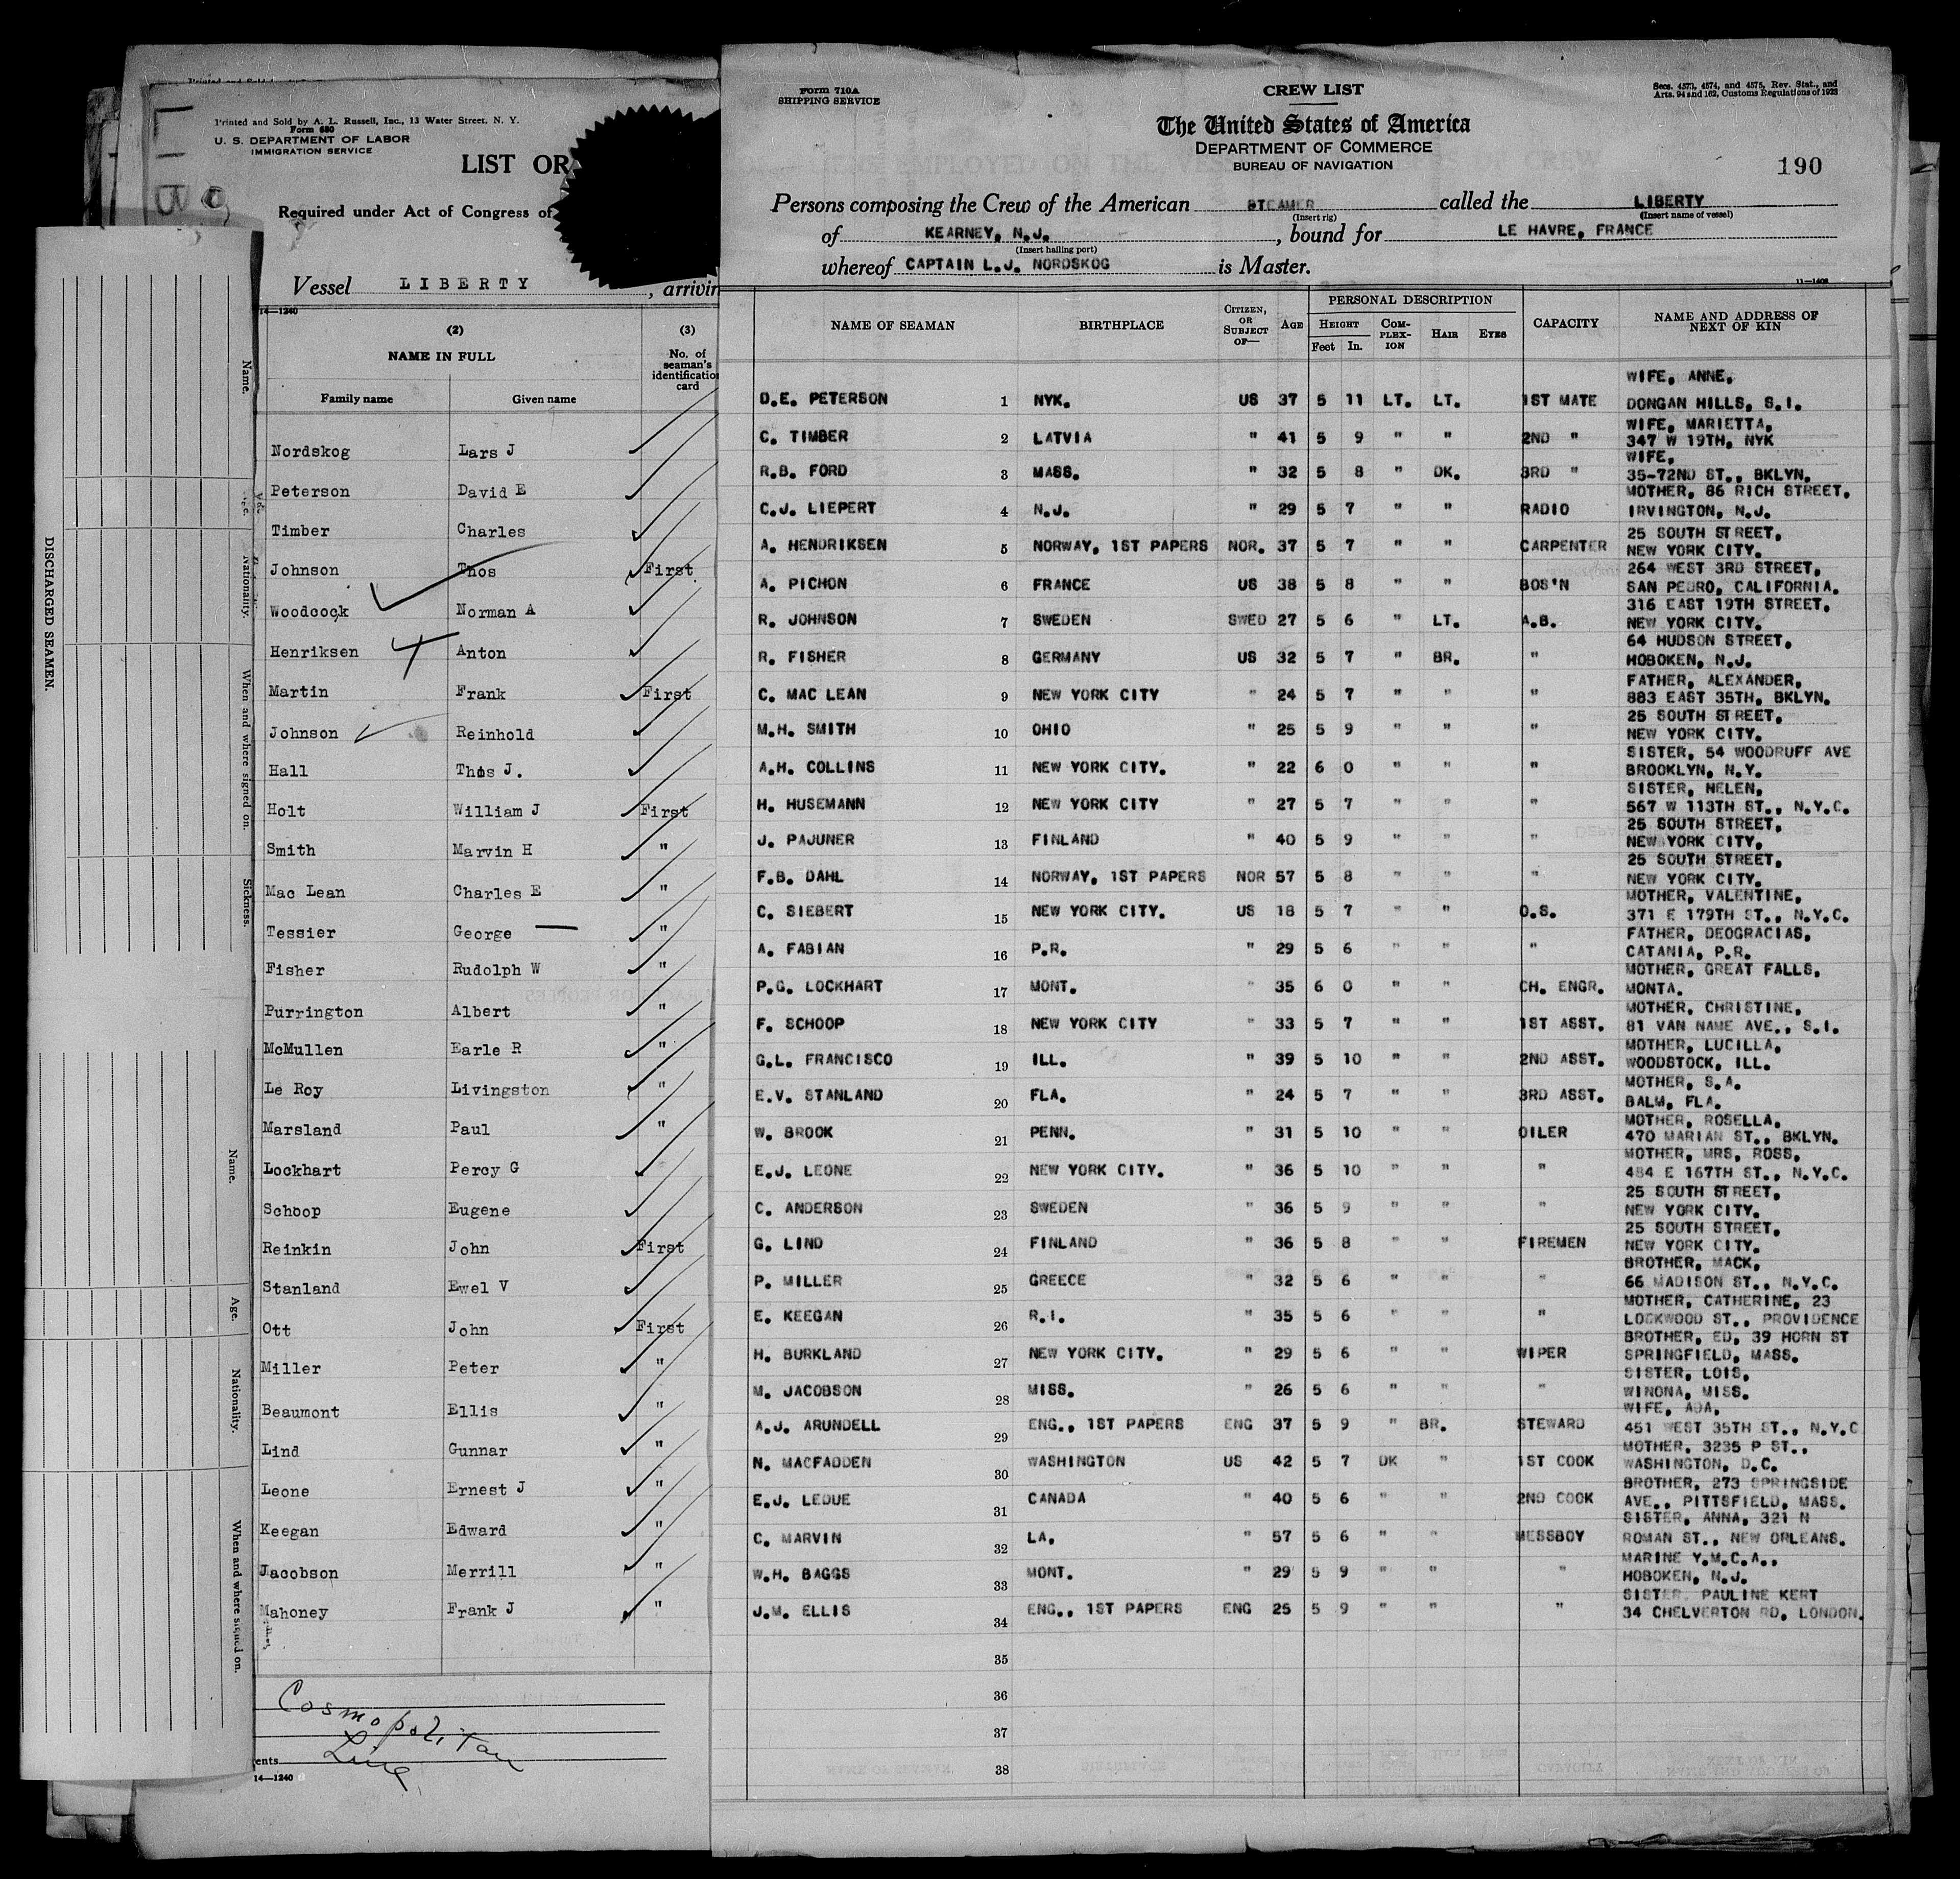 Printed and Sold by A. L. Russell, Inc., 13 Water Street, N. Y.
Form 680
U. S. DEPARTMENT OF LABOR
IMMIGRATION SERVICE
LIST OR
Required under Act of Congress of
Vessel LIBERTY, arrivin
14—1240
(2) (3)
NAME IN FULL
No. of seaman's identification card
Family name Given name
Nordskog Lars J
Peterson David E
Timber Charles
Johnson Thos First
Woodcock Norman A
Henriksen Anton
Martin Frank First
Johnson Reinhold
Hall Thos J.
Holt William J First
Smith Marvin H "
Mac Lean Charles E "
Tessier George "
Fisher Rudolph W "
Purrington Albert "
McMullen Earle R "
Le Roy Livingston "
Marsland Paul "
Lockhart Percy G
Schoop Eugene
Reinkin John First
Stanland Ewel V
Ott John First
Miller Peter "
Beaumont Ellis "
Lind Gunnar "
Leone Ernest J "
Keegan Edward "
Jacobson Merrill "
Mahoney Frank J "
Cosmopolitan
Line
ents
14—1240
DISCHARGED SEAMEN.
Name.
Nationality.
When and where signed on.
Sickness.
Name.
Age.
Nationality.
When and where signed on.
Form 710A
SHIPPING SERVICE
CREW LIST
Secs. 4573, 4574, and 4575, Rev. Stat., and
Arts. 94 and 162, Customs Regulations of 1923
The United States of America
DEPARTMENT OF COMMERCE
BUREAU OF NAVIGATION
190
Persons composing the Crew of the American STEAMER called the LIBERTY
(Insert rig) (Insert name of vessel)
of KEARNEY, N.J., bound for LE HAVRE, FRANCE
(Insert hailing port)
whereof CAPTAIN L.J. NORDSKOG is Master.
11—1408
NAME OF SEAMAN BIRTHPLACE CITIZEN, OR SUBJECT OF— AGE PERSONAL DESCRIPTION CAPACITY NAME AND ADDRESS OF NEXT OF KIN
HEIGHT COMPLEXION HAIR EYES
Feet In.
WIFE, ANNE,
D.E. PETERSON 1 NYK. US 37 5 11 LT. LT. 1ST MATE DONGAN HILLS, S.I.
WIFE, MARIETTA,
C. TIMBER 2 LATVIA " 41 5 9 " " 2ND " 347 W 19TH, NYK
WIFE,
R.B. FORD 3 MASS. " 32 5 8 " DK. 3RD " 35-72ND ST., BKLYN.
MOTHER, 86 RICH STREET,
C.J. LIEPERT 4 N.J. " 29 5 7 " " RADIO IRVINGTON, N.J.
25 SOUTH STREET,
A. HENDRIKSEN 5 NORWAY, 1ST PAPERS NOR. 37 5 7 " " CARPENTER NEW YORK CITY.
264 WEST 3RD STREET,
A. PICHON 6 FRANCE US 38 5 8 " " BOS'N SAN PEDRO, CALIFORNIA.
316 EAST 19TH STREET,
R. JOHNSON 7 SWEDEN SWED 27 5 6 " LT. A.B. NEW YORK CITY.
64 HUDSON STREET,
R. FISHER 8 GERMANY US 32 5 7 " BR. " HOBOKEN, N.J.
FATHER, ALEXANDER,
C. MAC LEAN 9 NEW YORK CITY " 24 5 7 " " " 883 EAST 35TH, BKLYN.
25 SOUTH STREET,
M.H. SMITH 10 OHIO " 25 5 9 " " " NEW YORK CITY.
SISTER, 54 WOODRUFF AVE
A.H. COLLINS 11 NEW YORK CITY. " 22 6 0 " " " BROOKLYN, N.Y.
SISTER, NELEN,
H. HUSEMANN 12 NEW YORK CITY " 27 5 7 " " " 567 W 113TH ST., N.Y.C.
25 SOUTH STREET,
J. PAJUNER 13 FINLAND " 40 5 9 " " " NEW YORK CITY.
25 SOUTH STREET,
F.B. DAHL 14 NORWAY, 1ST PAPERS NOR 57 5 8 " " " NEW YORK CITY.
MOTHER, VALENTINE,
C. SIEBERT 15 NEW YORK CITY. US 18 5 7 " " O.S. 371 E 179TH ST., N.Y.C.
FATHER, DEOGRACIAS,
A. FABIAN 16 P.R. " 29 5 6 " " " CATANIA, P.R.
MOTHER, GREAT FALLS,
P.G. LOCKHART 17 MONT. " 35 6 0 " " CH. ENGR. MONTA.
MOTHER, CHRISTINE,
F. SCHOOP 18 NEW YORK CITY " 33 5 7 " " 1ST ASST. 81 VAN NAME AVE., S.I.
MOTHER, LUCILLA,
G.L. FRANCISCO 19 ILL. " 39 5 10 " " 2ND ASST. WOODSTOCK, ILL.
MOTHER, S.A.
E.V. STANLAND 20 FLA. " 24 5 7 " " 3RD ASST. BALM, FLA.
MOTHER, ROSELLA,
W. BROOK 21 PENN. " 31 5 10 " " OILER 470 MARIAN ST., BKLYN.
MOTHER, MRS, ROSS,
E.J. LEONE 22 NEW YORK CITY. " 36 5 10 " " " 484 E 167TH ST., N.Y.C.
25 SOUTH STREET,
C. ANDERSON 23 SWEDEN " 36 5 9 " " " NEW YORK CITY.
25 SOUTH STREET,
G. LIND 24 FINLAND " 36 5 8 " " FIREMEN NEW YORK CITY.
BROTHER, MACK,
P. MILLER 25 GREECE " 32 5 6 " " " 66 MADISON ST., N.Y.C.
MOTHER, CATHERINE, 23
E. KEEGAN 26 R.I. " 35 5 6 " " " LOCKWOOD ST., PROVIDENCE
BROTHER, ED, 39 HORN ST
H. BURKLAND 27 NEW YORK CITY. " 29 5 6 " " WIPER SPRINGFIELD, MASS.
SISTER, LOIS,
M. JACOBSON 28 MISS. " 26 5 6 " " " WINONA, MISS.
WIFE, ADA,
A.J. ARUNDELL 29 ENG., 1ST PAPERS ENG 37 5 9 " BR. STEWARD 451 WEST 35TH ST., N.Y.C
MOTHER, 3235 P ST.,
N. MACFADDEN 30 WASHINGTON US 42 5 7 DK " 1ST COOK WASHINGTON, D.C.
BROTHER, 273 SPRINGSIDE
E.J. LEDUE 31 CANADA " 40 5 6 " " 2ND COOK AVE., PITTSFIELD, MASS.
SISTER, ANNA, 321 N
C. MARVIN 32 LA, " 57 5 6 " " MESSBOY ROMAN ST., NEW ORLEANS.
MARINE Y.M.C.A.,
W.H. BAGGS 33 MONT. " 29 5 9 " " " HOBOKEN, N.J.
SISTER, PAULINE KERT
J.M. ELLIS 34 ENG., 1ST PAPERS ENG 25 5 9 " " " 34 CHELVERTON RD, LONDON.
35
36
37
38